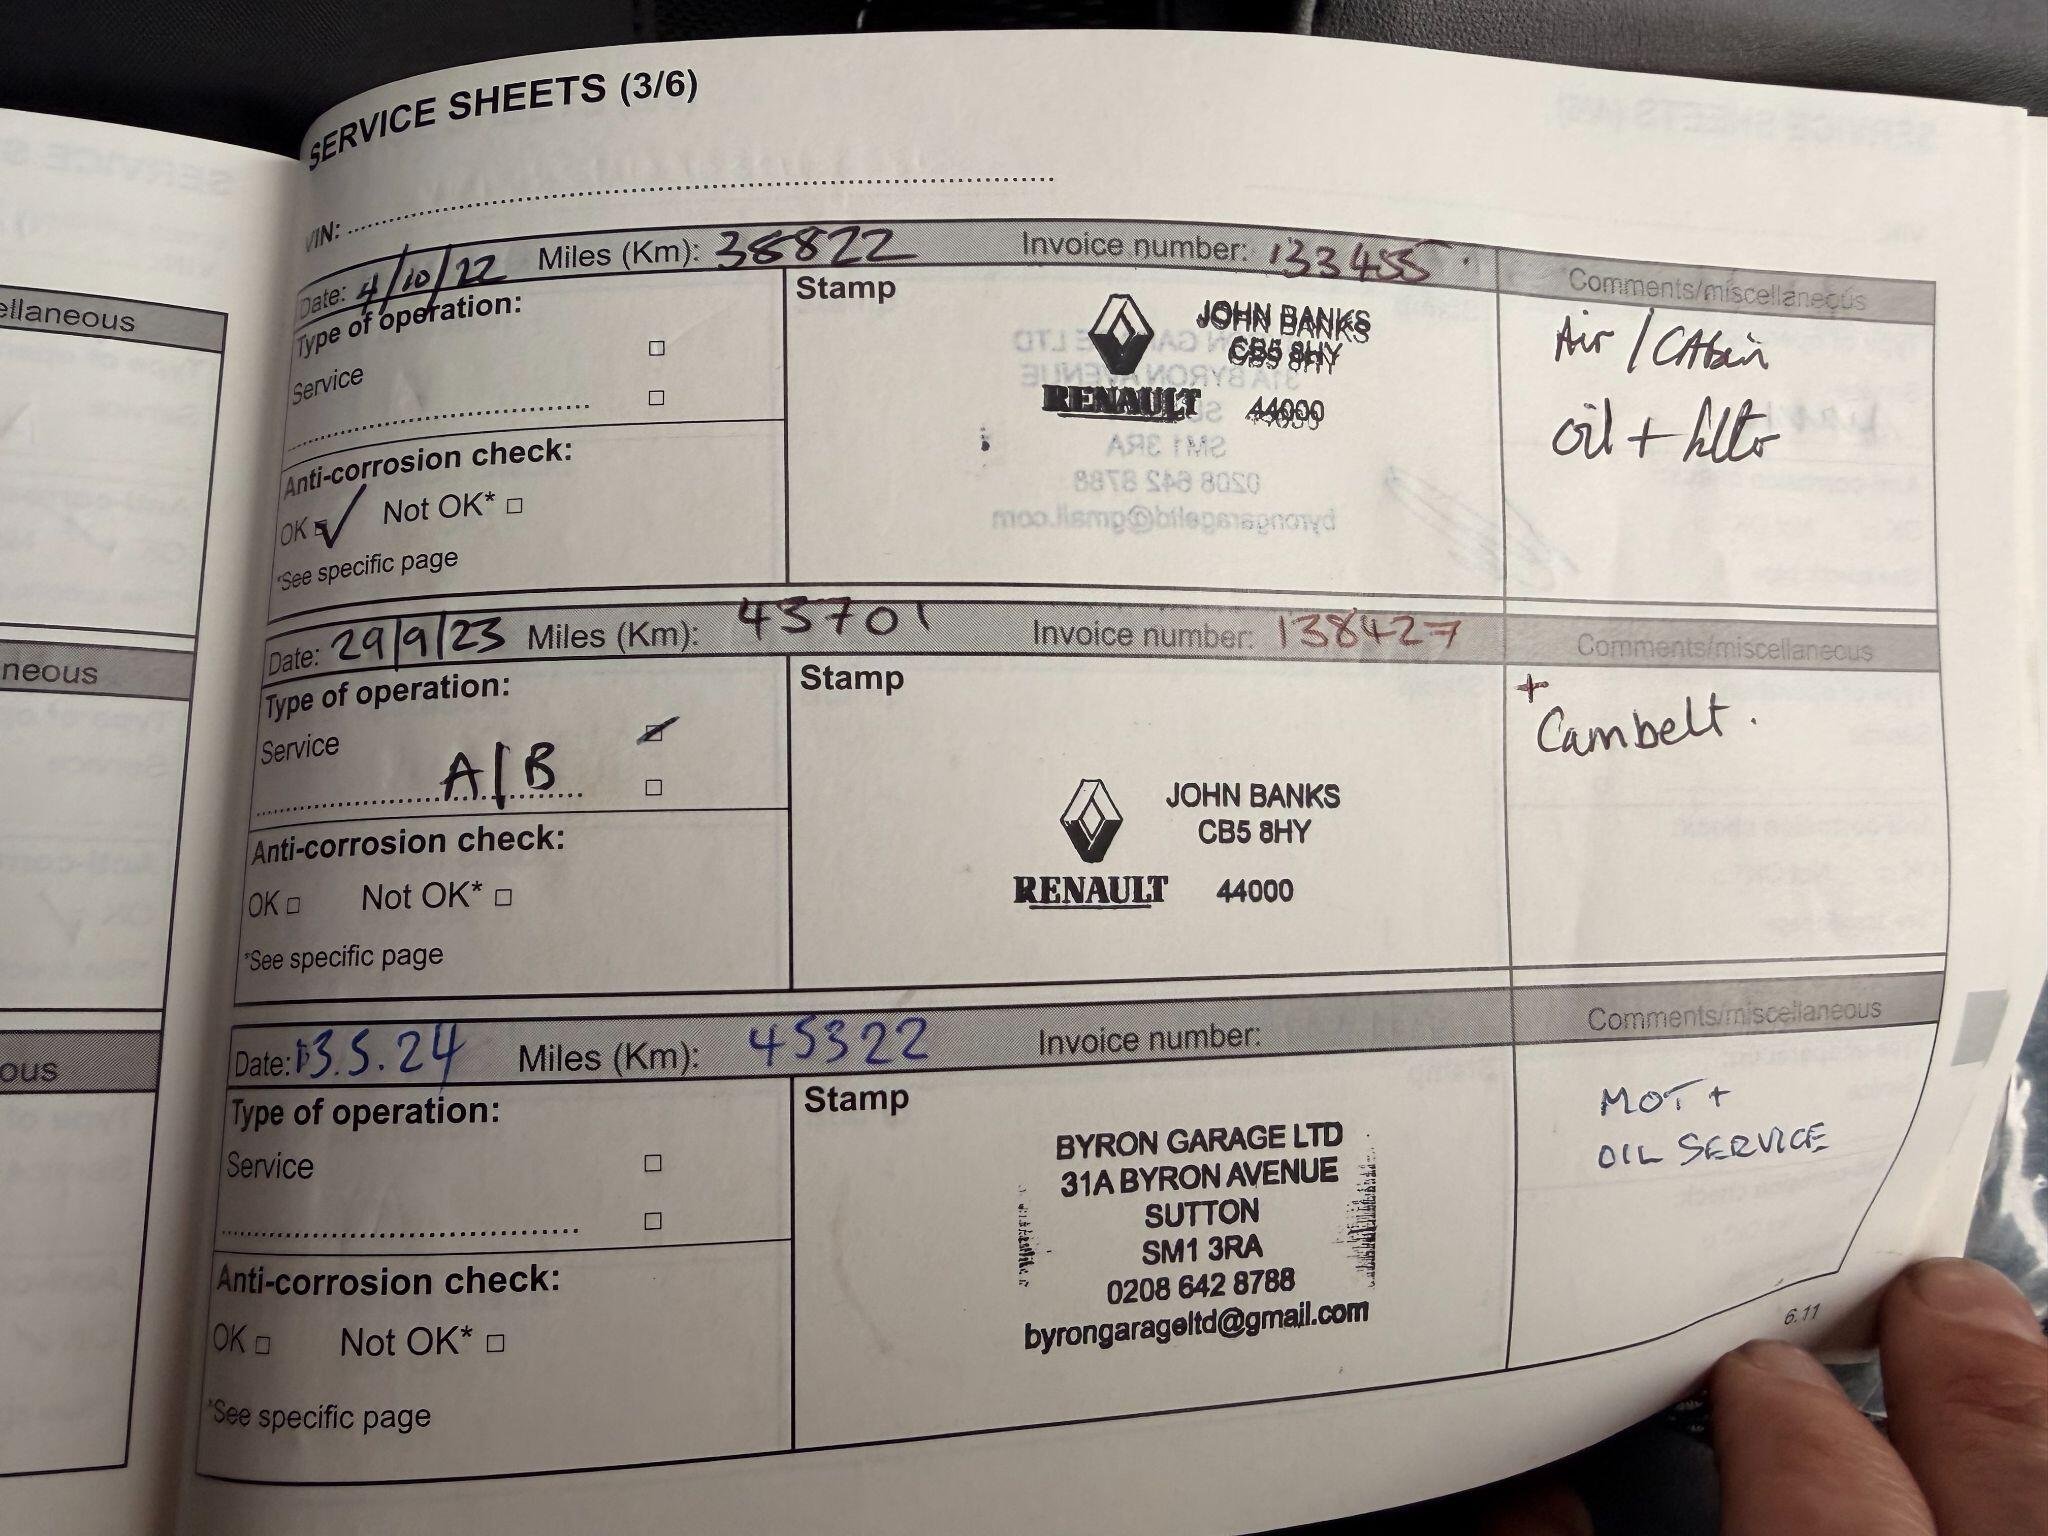 SERVICE SHEETS (3/6)
VIN:
Date: 4/10/22 Miles (Km): 38822 Invoice number: 133455 Comments/miscellaneous
Type of operation:
Service
Stamp
JOHN BANKS
CB5 8HY
RENAULT 44000
Air / CAbin
oil + filter
Anti-corrosion check:
OK Not OK*
*See specific page
Date: 29/9/23 Miles (Km): 43701 Invoice number: 138427 Comments/miscellaneous
Type of operation:
Service
A/B
Stamp
JOHN BANKS
CB5 8HY
RENAULT 44000
+
Cambelt.
Anti-corrosion check:
OK Not OK*
*See specific page
Date: 13.5.24 Miles (Km): 45322 Invoice number: Comments/miscellaneous
Type of operation:
Service
Stamp
BYRON GARAGE LTD
31A BYRON AVENUE
SUTTON
SM1 3RA
0208 642 8788
byrongarageltd@gmail.com
MOT +
OIL SERVICE
Anti-corrosion check:
OK Not OK*
*See specific page
6.11
ellaneous
neous
ous